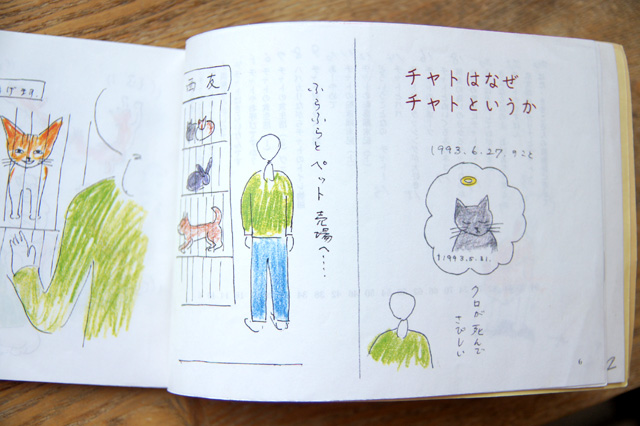 チャトはなぜ
チャトというか
1993.6.27.のこと
†1993.5.31.
クロが死んで
さびしい
ふらふらと ペット 売場へ・・・
西友
げます
6
2